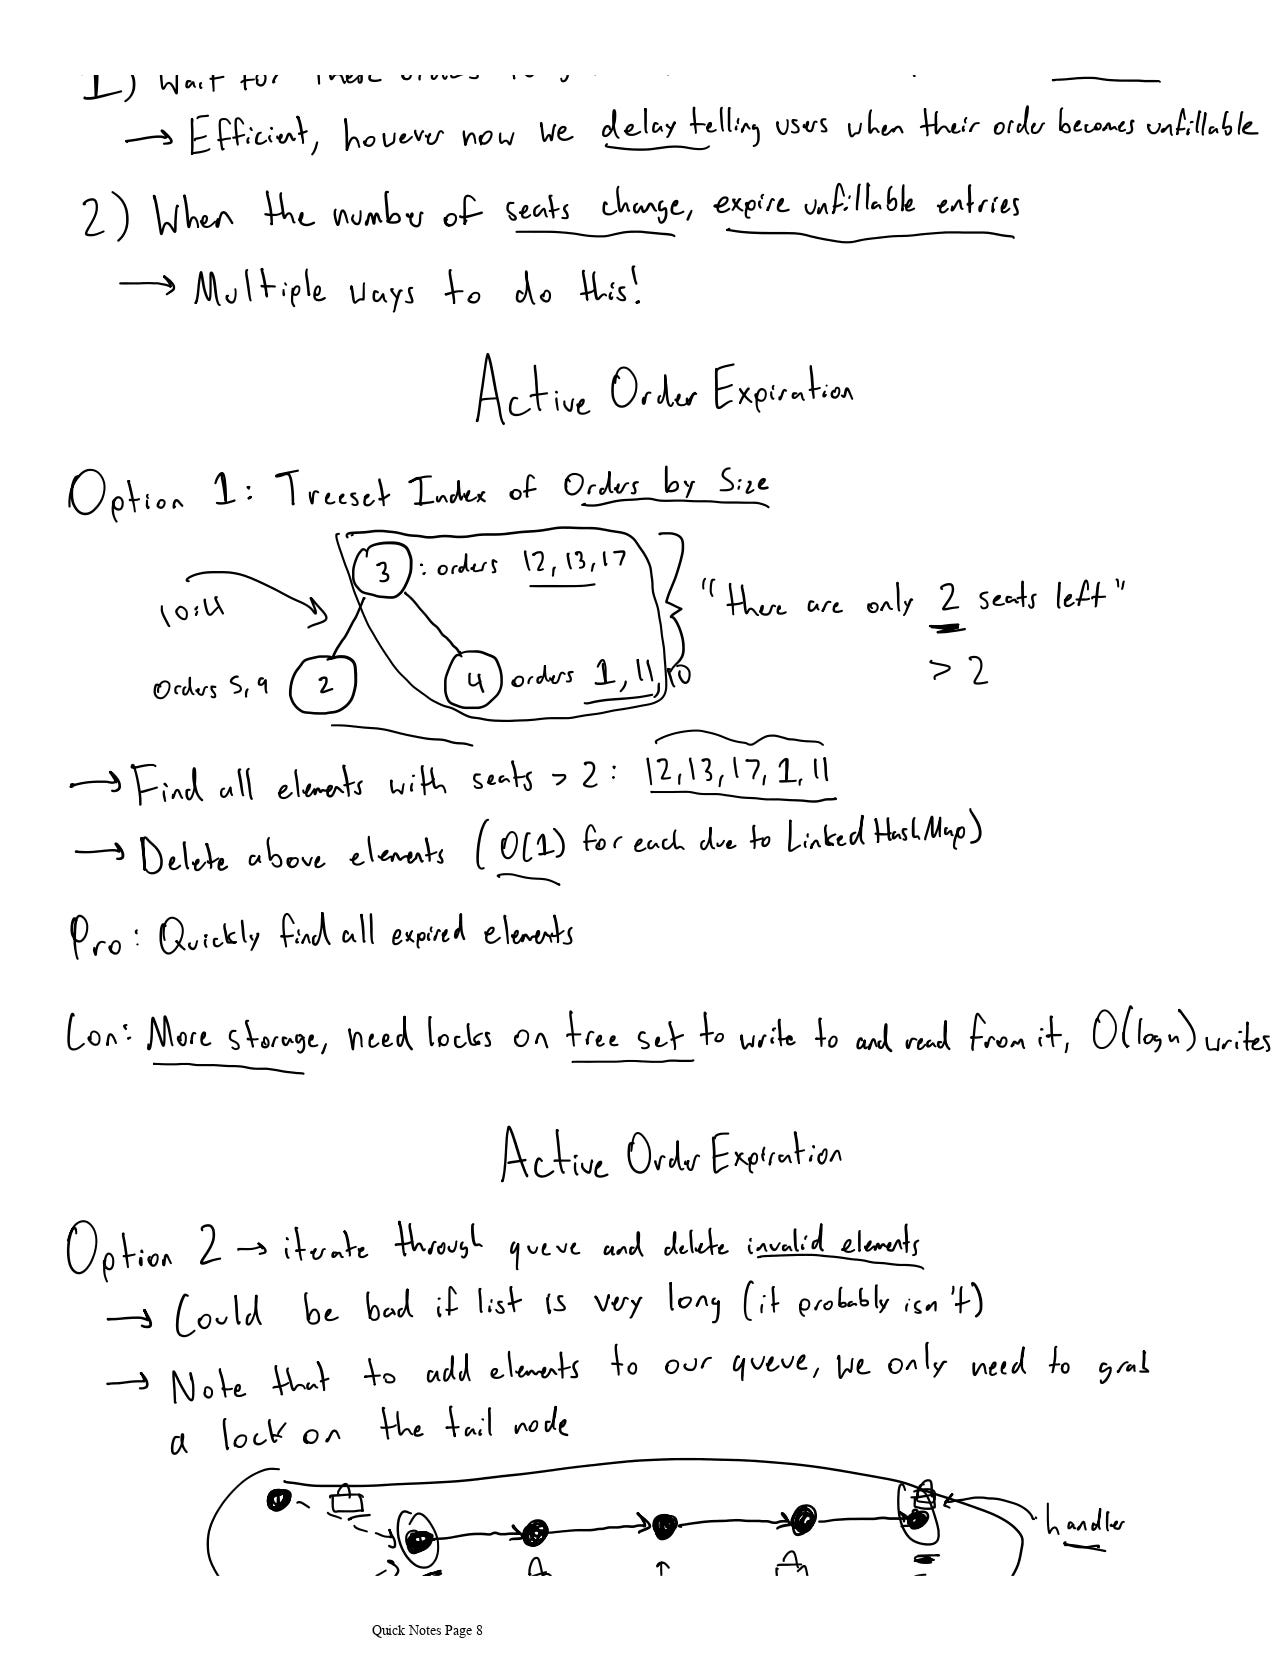 1) Wait for these orders
→ Efficient, however now we delay telling users when their order becomes unfillable
2) When the number of seats change, expire unfillable entries
→ Multiple ways to do this!
Active Order Expiration
Option 1: Treeset Index of Orders by Size
3 : orders 12, 13, 17
10:4
"there are only 2 seats left"
Orders 5, 9 2 4 orders 1, 11, 10
> 2
→ Find all elements with seats > 2: 12, 13, 17, 1, 11
→ Delete above elements (O(1) for each due to LinkedHashMap)
Pro: Quickly find all expired elements
Con: More storage, need locks on tree set to write to and read from it, O(logn) writes
Active Order Expiration
Option 2 → iterate through queue and delete invalid elements
→ Could be bad if list is very long (it probably isn't)
→ Note that to add elements to our queue, we only need to grab
a lock on the tail node
handler
Quick Notes Page 8